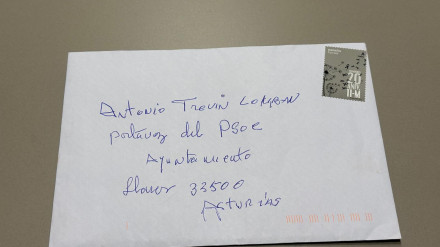 Antonio Trevín Lombán
portavoz del PSOE
Ayuntamiento
Llanes 33500
ASTURIAS
20
11-M